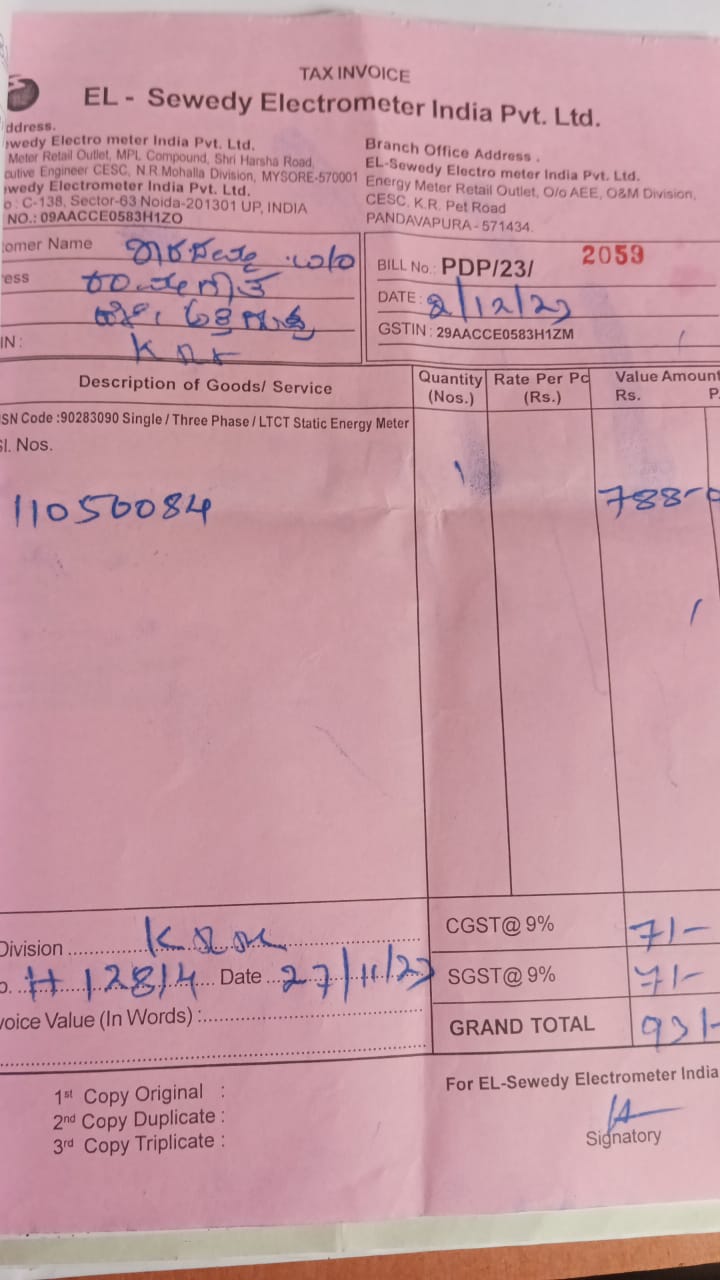 TAX INVOICE
EL - Sewedy Electrometer India Pvt. Ltd.
ddress.
wedy Electro meter India Pvt. Ltd.
Meter Retail Outlet, MPL Compound, Shri Harsha Road,
cutive Engineer CESC, N.R Mohalla Division, MYSORE-570001
wedy Electrometer India Pvt. Ltd.
o : C-138, Sector-63 Noida-201301 UP, INDIA
NO.: 09AACCE0583H1ZO
Branch Office Address .
EL-Sewedy Electro meter India Pvt. Ltd.
Energy Meter Retail Outlet, O/o AEE, O&M Division,
CESC. K.R. Pet Road
PANDAVAPURA - 571434.
omer Name
ess
IN :
BILL No.: PDP/23/ 2059
DATE : 2/12/23
GSTIN : 29AACCE0583H1ZM
Description of Goods/ Service
Quantity (Nos.)
Rate Per Pc (Rs.)
Value Amount
Rs. P.
SN Code :90283090 Single / Three Phase / LTCT Static Energy Meter
Sl. Nos.
11050084 1 788-0
Division
o. H 12814 Date 27/11/23
voice Value (In Words) :
CGST@ 9% 71-
SGST@ 9% 71-
GRAND TOTAL 931-
1st Copy Original :
2nd Copy Duplicate :
3rd Copy Triplicate :
For EL-Sewedy Electrometer India
Signatory